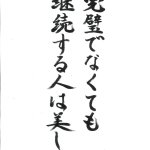 完璧でなくても
継続する人は美し